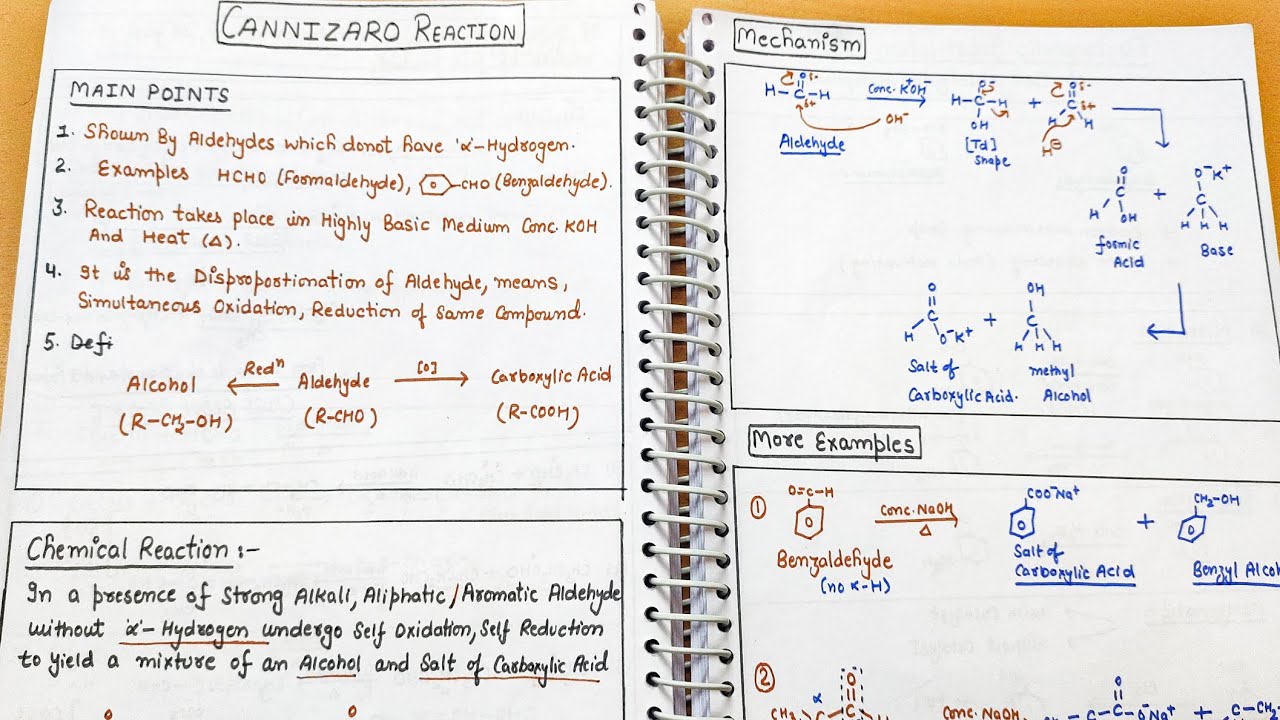 CANNIZARO REACTION
MAIN POINTS
1. Shown By Aldehydes which donot have 'α'-Hydrogen.
2. Examples HCHO (Formaldehyde), -CHO (Benzaldehyde).
3. Reaction takes place in Highly Basic Medium Conc. KOH
And Heat (Δ).
4. It is the Disproportionation of Aldehyde, means,
Simultaneous Oxidation, Reduction of Same Compound.
5. Defi
Alcohol ← Redⁿ Aldehyde [O] → Carboxylic Acid
(R-CH₂-OH) (R-CHO) (R-COOH)
Chemical Reaction :-
In a presence of Strong Alkali, Aliphatic/Aromatic Aldehyde
without 'α'-Hydrogen undergo Self Oxidation, Self Reduction
to yield a mixture of an Alcohol and Salt of Carboxylic Acid
O O
Mechanism
O δ- O⁻ O δ-
H-C-H Conc. K⁺OH⁻ → H-C-H + C δ+
δ+ OH⁻ OH H H
Aldehyde [Td] H⊖
Shape
O O⁻K⁺
C + C
H OH H H H
formic Base
Acid
O OH
C + C
H O⁻K⁺ H H H
Salt of methyl
Carboxylic Acid. Alcohol
More Examples
① O=C-H Conc. NaOH → COO⁻Na⁺ + CH₂-OH
Δ
Benzaldehyde Salt of
(no α-H) Carboxylic Acid Benzyl Alco
② α O O
CH₃ C Conc. NaOH C-C O⁻Na⁺ + C-CH₂